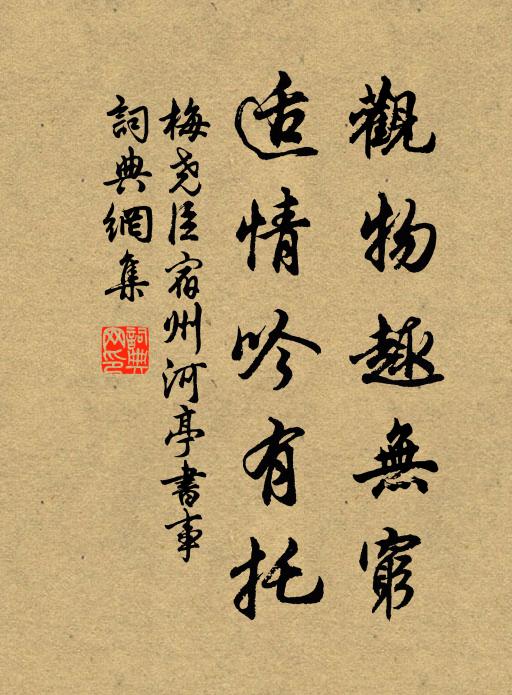 觀物趣無窮
适情吟有托
梅尧臣宿州河亭書事
詞典網集
詞典網印